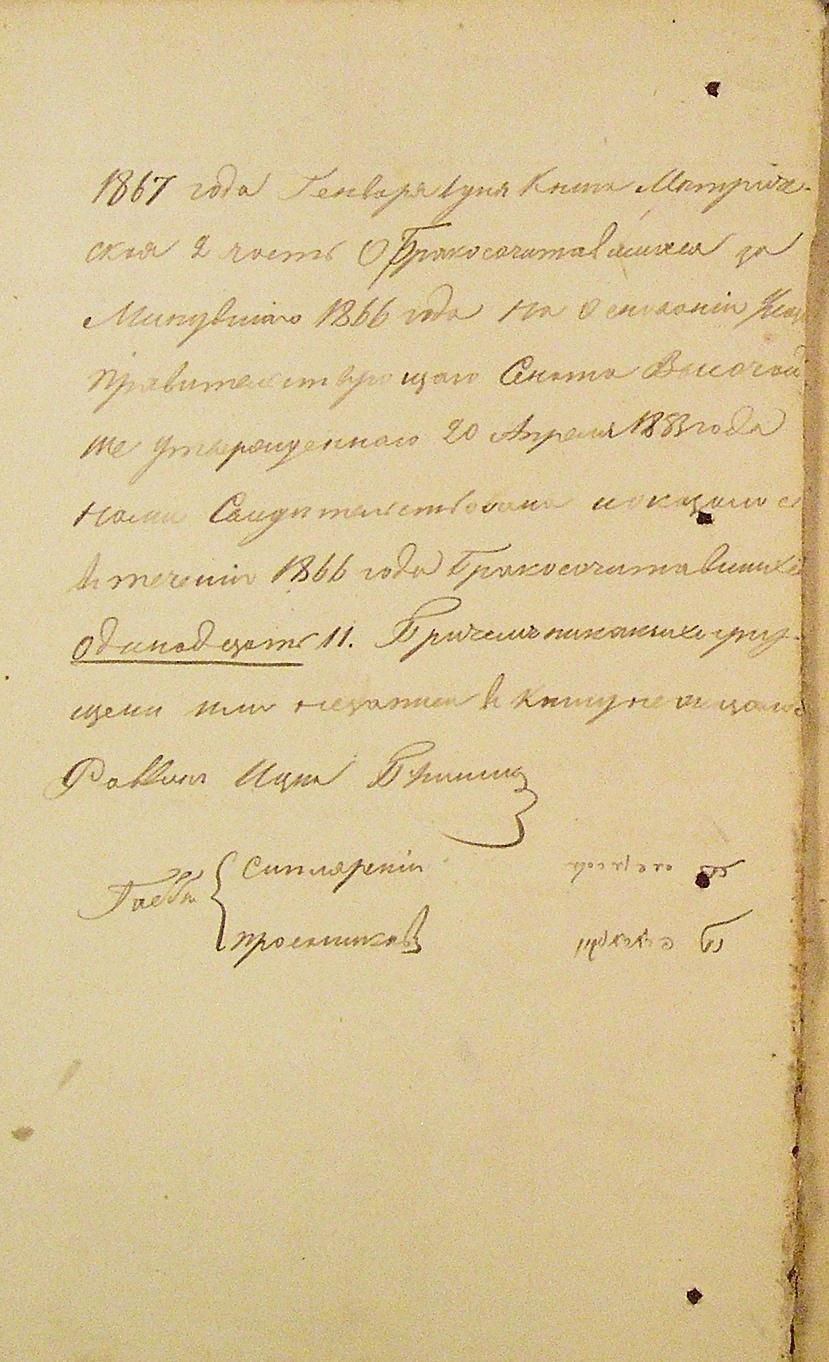 1867 года Генваря 1 дня Книга Метриче-
ская 2 часть О Бракосочитавшихся за
Минувшаго 1866 года На Основании
Правительствующаго Сената Высочай
ше утвержденнаго 20 Апреля 1883 года
Нами Свидетельствована и оказалось
в течении 1866 года Бракосочитавшихся
Одинадцать 11. Причем никаких упу-
щени или в Книгу не оказалось
Раввин Ицка
Габбаи
Столярский
Просяников